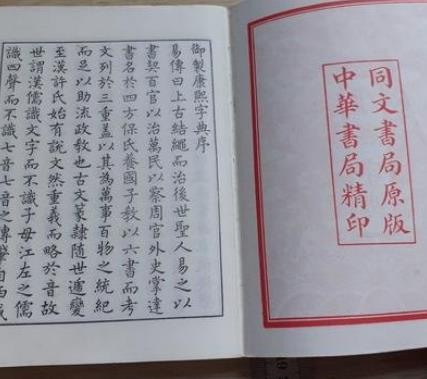 同文書局原版
中華書局精印
御製康熙字典序
易傳曰上古結繩而治後世聖人易之以
書契百官以治萬民以察周官外史掌達
書名於四方保氏養國子教以六書而考
文列於三重蓋以其為萬事百物之統紀
而足以助流政教也古文篆隸隨世遞變
至漢許氏始有說文然重義而略於音故
世謂漢儒識文字而不識子母江左之儒
識四聲而不識七音七音之傳肇自西域